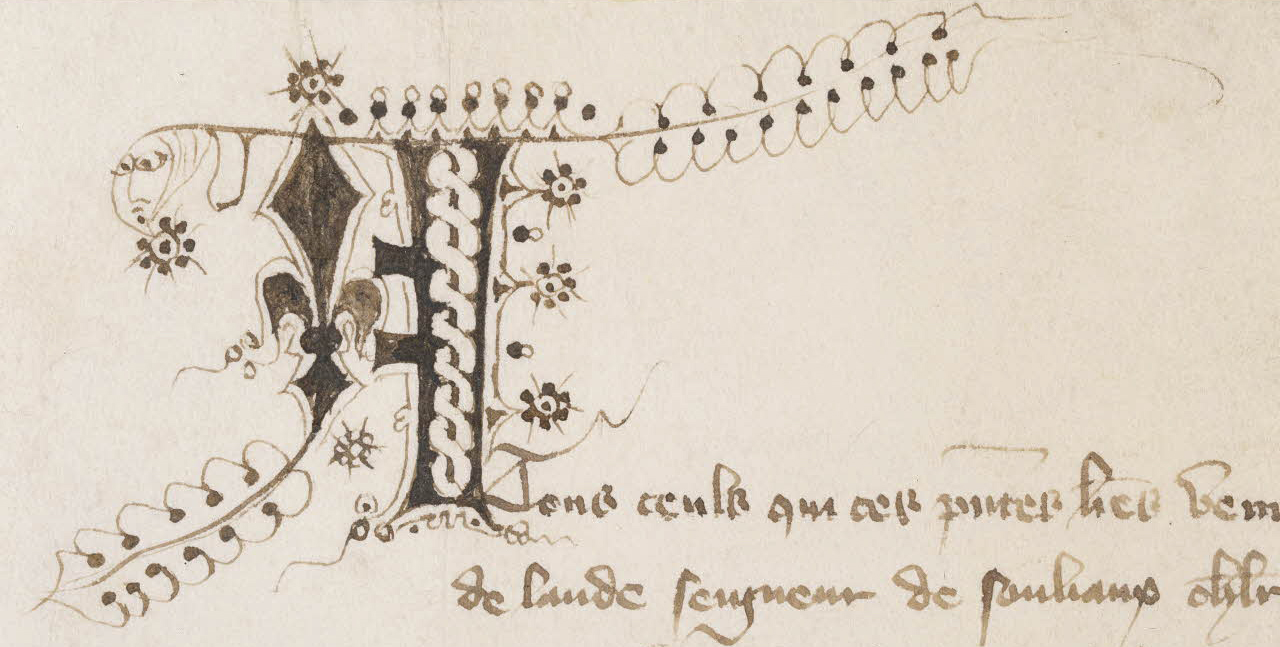 A Tous ceuls qui ces pntes lres
de laude seigneur de soulians chlr